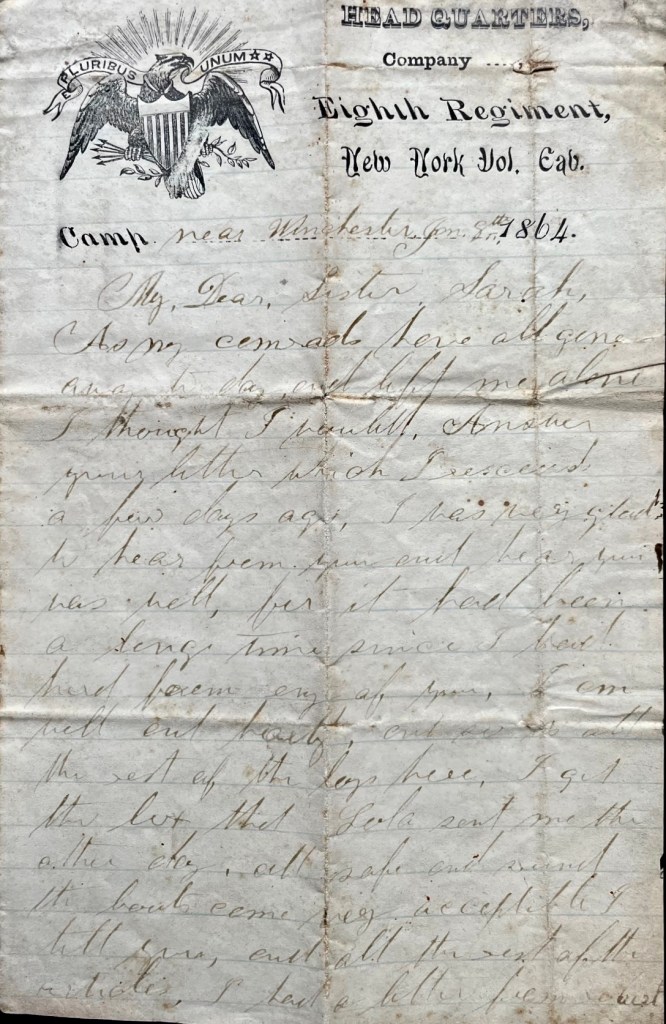 E PLURIBUS UNUM
HEAD QUARTERS,
Company
Eighth Regiment,
New York Vol. Cav.
Camp near Winchester Jan. 8th 1864.
My, Dear, Sister, Sarah,
As my comrads have all gone
away to day, and left me alone
I thought I would, Answer
your letter which I received
a few days ago, I was very glad
to hear from you and hear you
was well, for it had been
a long time since I had
herd from eny of you, I am
well and hearty, and so is all
the rest of the boys here, I got
the box that sent me the
other day, all safe and sound
the boots come very acceptible I
tell you, and all the rest of the
articles, I had a letter from